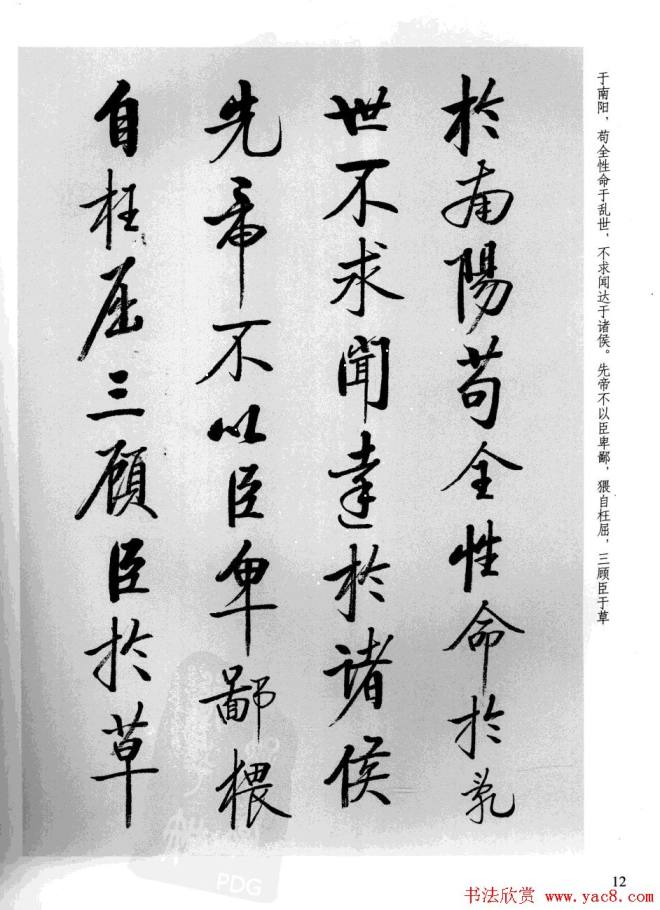 于南阳，苟全性命于乱世，不求闻达于诸侯。先帝不以臣卑鄙，猥自枉屈，三顾臣于草
於南陽苟全性命於乱
世不求聞達於諸侯
先帝不以臣卑鄙猥
自枉屈三顾臣於草
PDG
12
书法欣赏 www.yac8.com